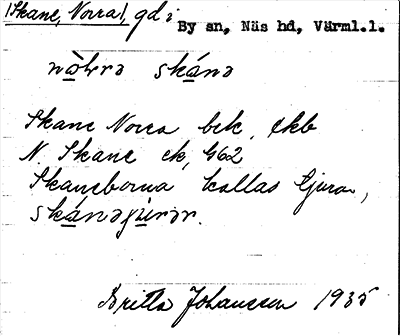 /Skane, Norra/, gd i
By sn, Näs hd, Värml.l.
nò̱ɫrə ská̱nə
Skane Norra bek, ekb
N. Skane ek, G62
Skaneborna kallas tjurar,
ská̱nəȷ̀ṵrər.
Britta Johansson 1935